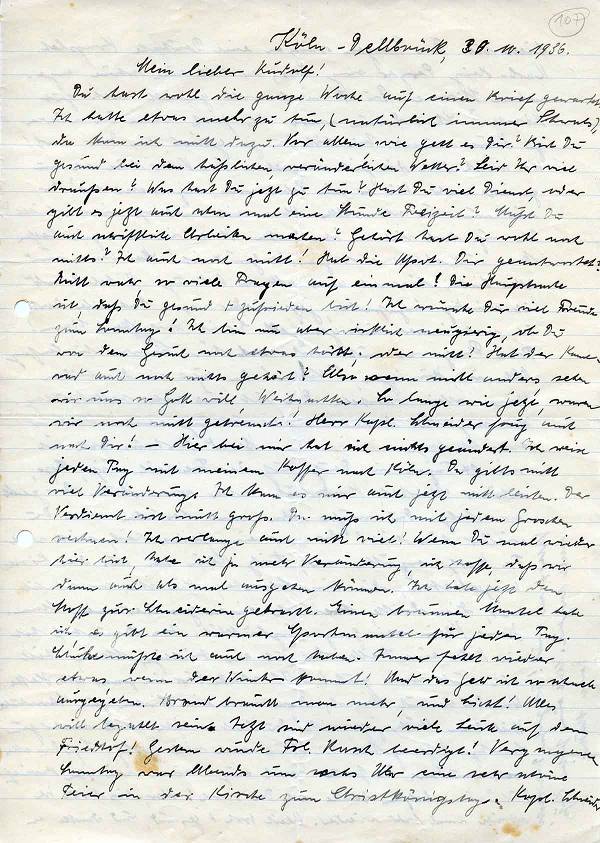 107
Köln-Dellbrück, 30.10.1936.
Mein lieber Rudolf!
Du hast wohl die ganze Woche auf einen Brief gewartet.
Ich hatte etwas mehr zu tun, (natürlich immer etwas),
da kam ich nicht dazu. Vor allem wie geht es Dir? Bist Du
gesund bei dem häßlichen, veränderlichen Wetter? Seid Ihr viel
draußen? Was hast Du jetzt zu tun? Hast Du viel Dienst, oder
gibt es jetzt auch schon mal eine Stunde Freizeit? Müßt Du
auch schriftliche Arbeiten machen? Gehört hast Du wohl noch
nichts? Ich auch noch nicht! Hat die Dir geantwortet?
Nicht wahr so viele Fragen auf einmal! Die Hauptsache
ist, daß Du gesund + zufrieden bist! Ich wünsche Dir viel Freude
zum Sonntag! Ich bin nun aber wirklich neugierig, ob Du
von dem Gesuch noch etwas hörst, oder nicht! Hat der Kame-
rad auch noch nichts gehört? Also wenn nicht anders sehen
wir uns so Gott will, Weihnachten. So lange wie jetzt, waren
wir noch nicht getrennt! Herr Kapl. Schneider frug auch
nach Dir! – Hier bei mir hat sich nichts geändert. Ich reise
jeden Tag mit meinem Koffer nach Köln. Da gibts nicht
viel Veränderung. Ich kann es mir auch jetzt nicht leisten. Der
Verdienst ist nicht groß. Da muß ich mit jedem Groschen
rechnen! Ich verlange auch nicht viel! Wenn Du mal wieder
hier bist, habe ich ja mehr Veränderung, ich hoffe, daß wir
dann auch als mal ausgehen können. Ich habe jetzt den
Stoff zur Schneiderin gebracht. Einen braunen Mantel habe
ich es gibt ein warmer Sportmantel für jeden Tag.
Schuhe müßte ich auch noch haben. Immer fehlt wieder
etwas wenn der Winter kommt! Und das Geld ist so schnell
ausgegeben. Brand braucht man mehr, und Licht! Alles
will bezahlt sein. Jetzt sind wieder viele Leute auf dem
Friedhof! Gestern wurde Frl. beerdigt! Vergangenen
Sonntag war Abends um sechs Uhr eine sehr schöne
Feier in der Kirche zum Christkönigstag. Kapl. Schneider